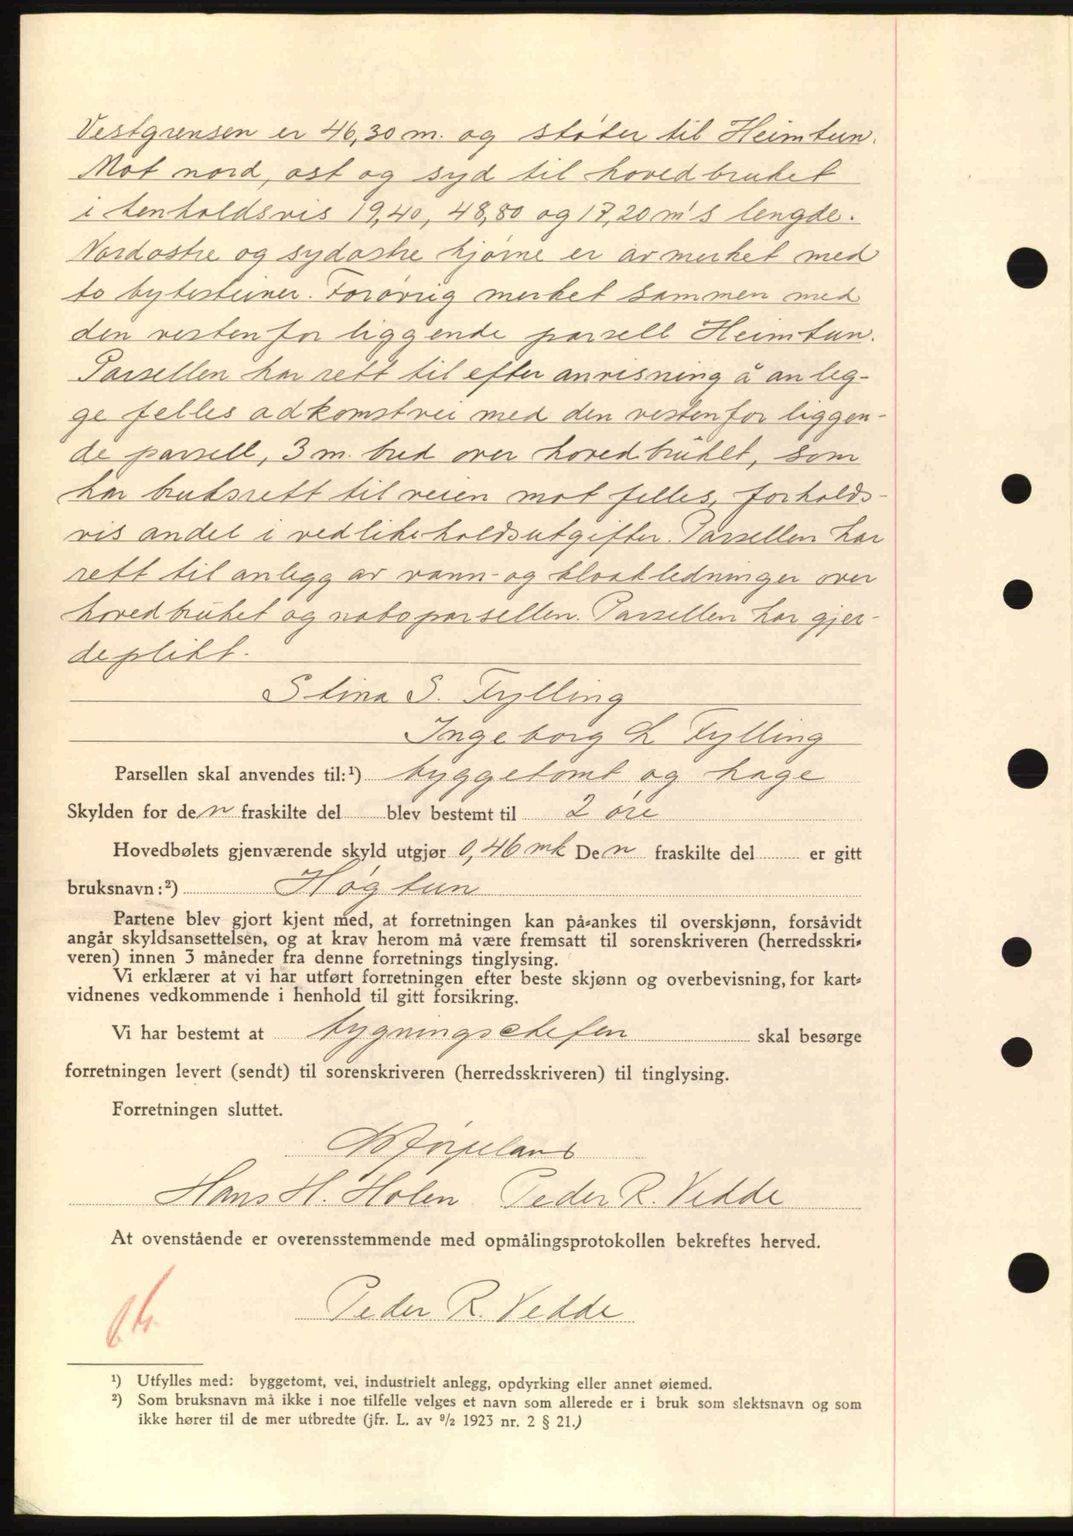 Vestgrensen er 46,30 m. og støter til Heimtun.
Mot nord, øst og syd til hovedbruket
i henholdsvis 19,40, 48,80 og 17,20 m's lengde.
Nordøstre og sydøstre hjørne er avmerket med
to bytesteiner. Forøvrig merket sammen med
den vestenfor liggende parsell Heimtun.
Parsellen har rett til efter anvisning å anleg-
ge felles adkomstvei med den vestenfor liggen-
de parsell, 3 m. bred over hovedbruket, som
har bruksrett til veien mot felles, forholds-
vis andel i vedlikeholdsutgifter. Parsellen har
rett til anlegg av vann- og kloakledninger over
hovedbruket og naboparsellen. Parsellen har gjer-
deplikt.
Stina S. Fylling
Ingeborg L Fylling
Parsellen skal anvendes til:¹) byggetomt og hage
Skylden for den fraskilte del blev bestemt til 2 øre
Hovedbølets gjenværende skyld utgjør 0,46 mk Den fraskilte del er gitt
bruksnavn:²) Høgtun
Partene blev gjort kjent med, at forretningen kan på-ankes til overskjønn, forsåvidt
angår skyldsansettelsen, og at krav herom må være fremsatt til sorenskriveren (herredsskri-
veren) innen 3 måneder fra denne forretnings tinglysing.
Vi erklærer at vi har utført forretningen efter beste skjønn og overbevisning, for kart-
vidnenes vedkommende i henhold til gitt forsikring.
Vi har bestemt at bygningschefen skal besørge
forretningen levert (sendt) til sorenskriveren (herredsskriveren) til tinglysing.
Forretningen sluttet.
Hans H. Holen Peder R. Vedde
At ovenstående er overensstemmende med opmålingsprotokollen bekreftes herved.
Peder R. Vedde
¹) Utfylles med: byggetomt, vei, industrielt anlegg, opdyrking eller annet øiemed.
²) Som bruksnavn må ikke i noe tilfelle velges et navn som allerede er i bruk som slektsnavn og som
ikke hører til de mer utbredte (jfr. L. av ⁹/₂ 1923 nr. 2 § 21.)